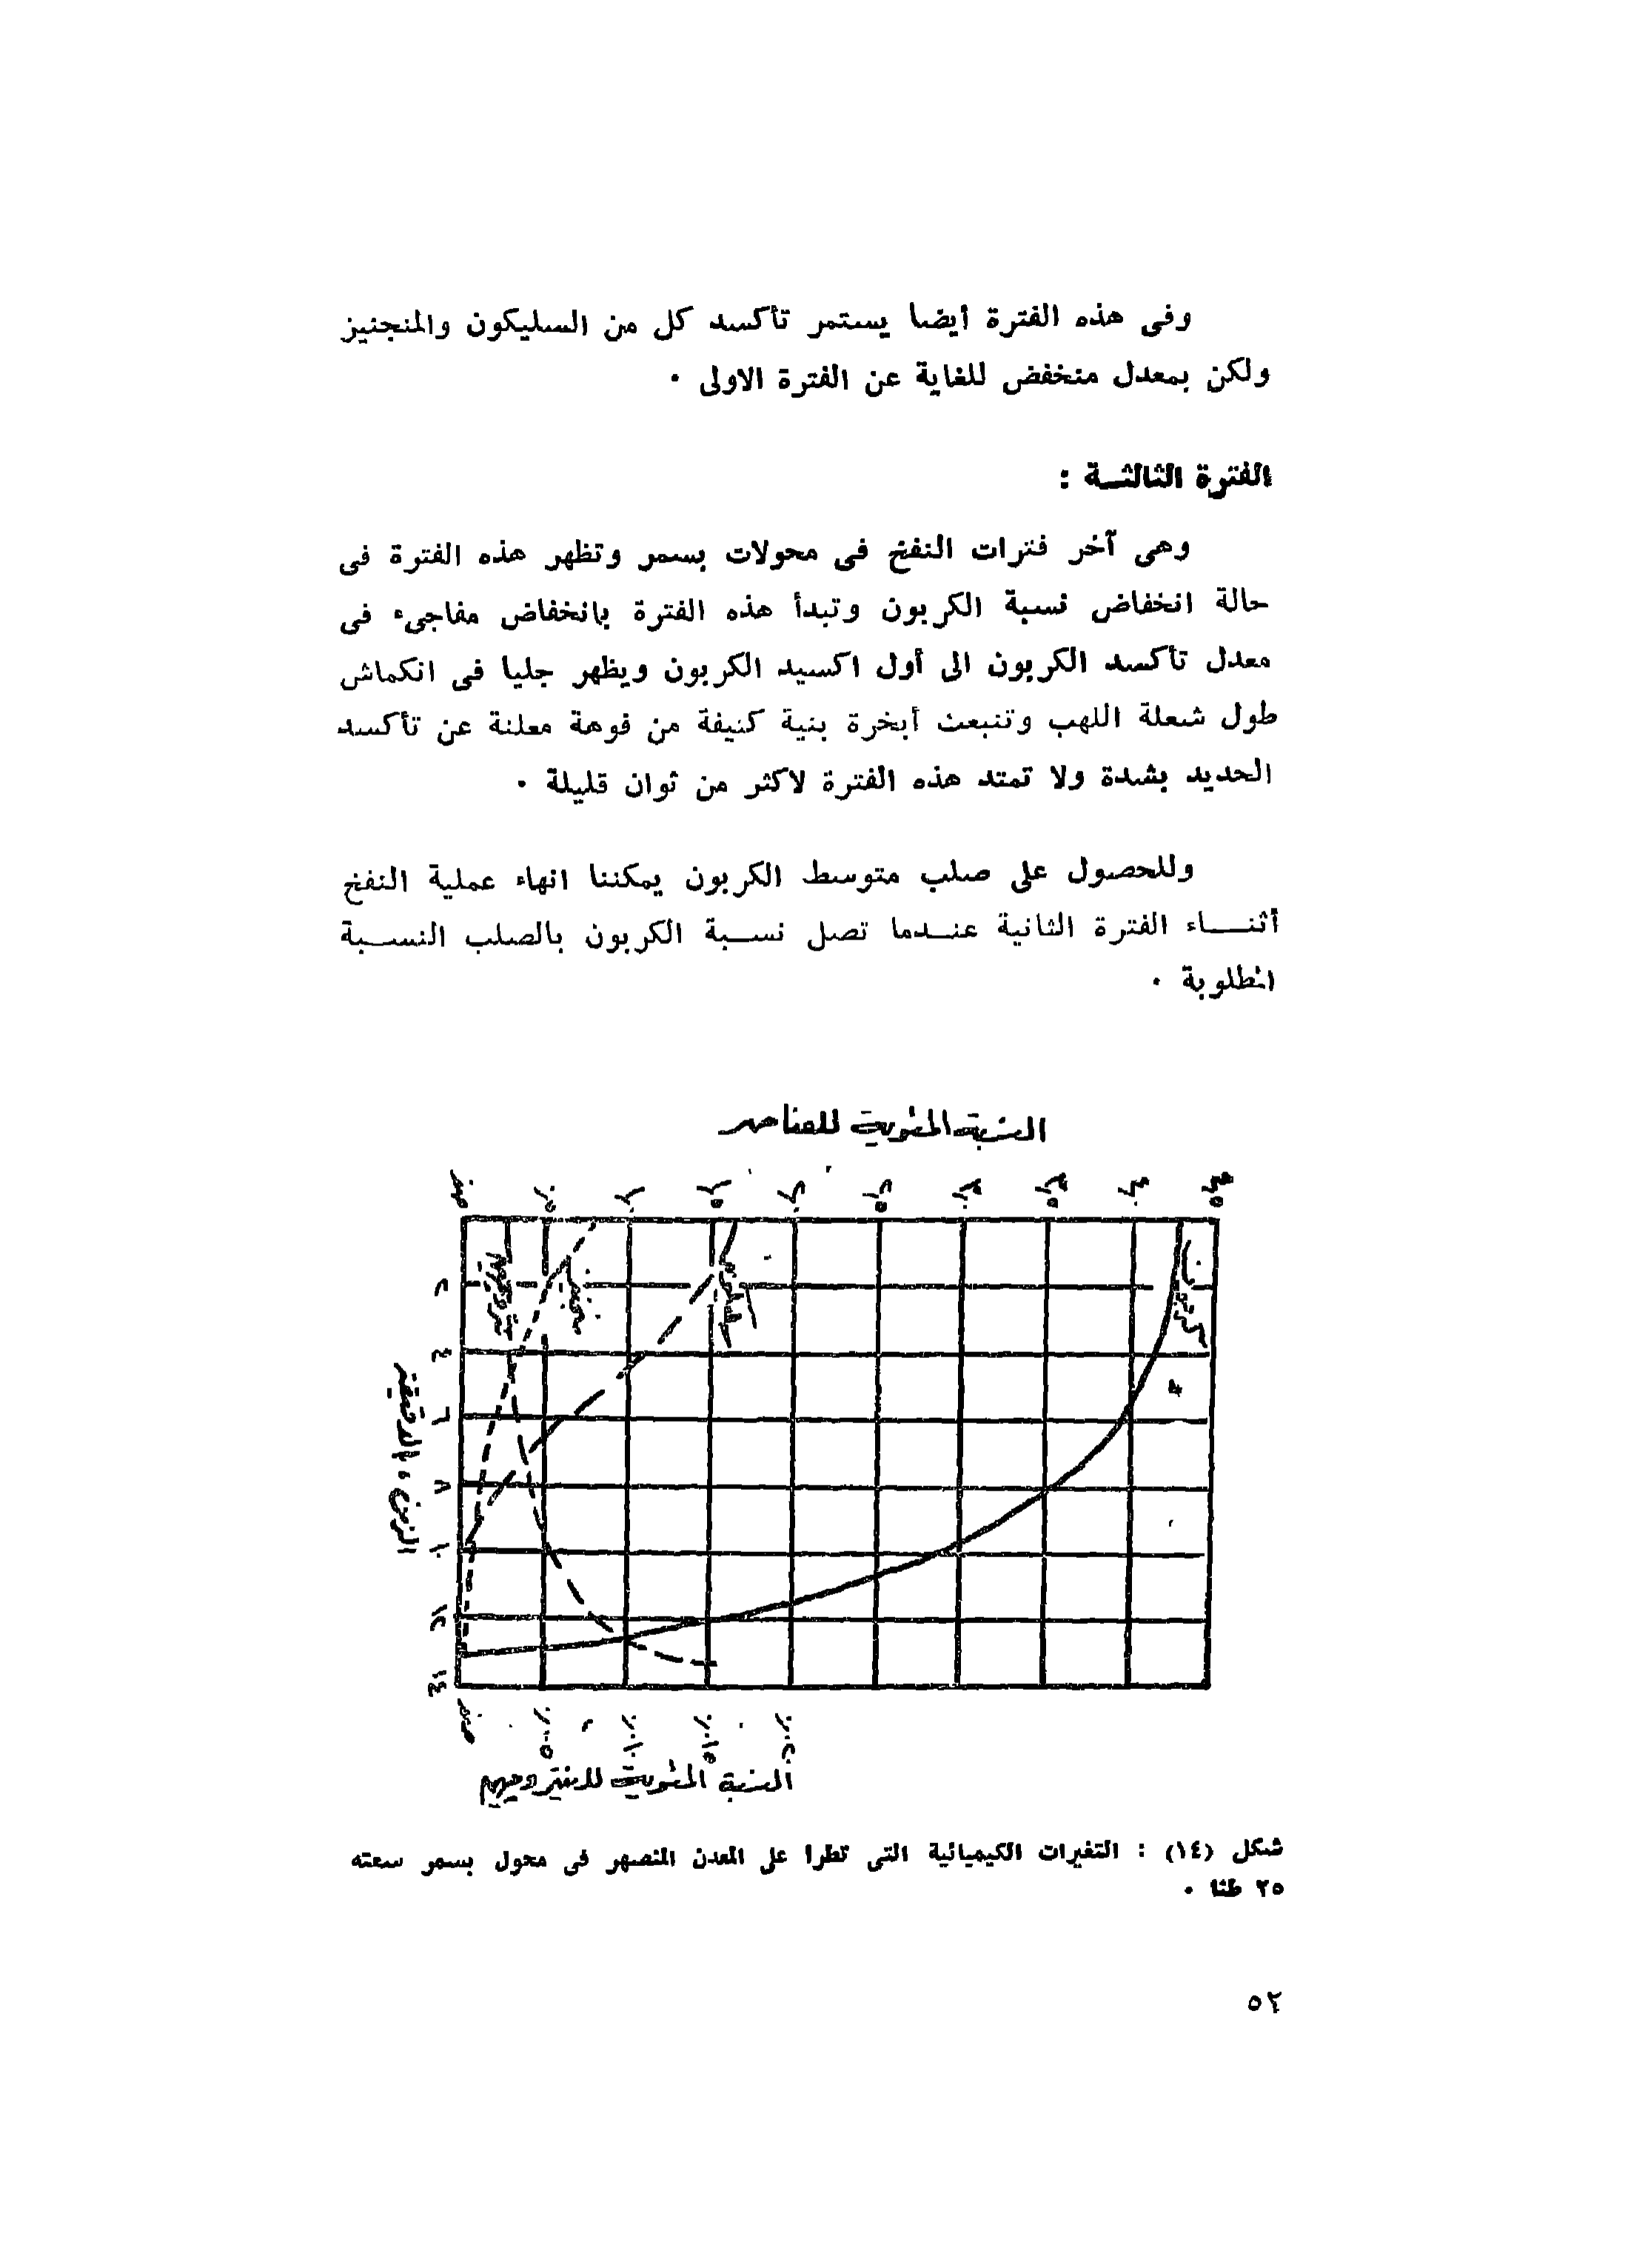 وفى هذه الفترة أيضا يستمر تأكسد كل من السليكون والمنجنيز
ولكن بمعدل منخفض للغاية عن الفترة الاولى ٠
الفترة الثالثــة :
وهى آخر فترات النفخ فى محولات بسمر وتظهر هذه الفترة فى
حالة انخفاض نسبة الكربون وتبدأ هذه الفترة بانخفاض مفاجىء فى
معدل تأكسد الكربون الى أول اكسيد الكربون ويظهر جليا فى انكماش
طول شعلة اللهب وتنبعث أبخرة بنية كثيفة من فوهة معلنة عن تأكسد
الحديد بشدة ولا تمتد هذه الفترة لاكثر من ثوان قليلة ٠
وللحصول على صلب متوسط الكربون يمكننا انهاء عملية النفخ
أثنـــاء الفترة الثانية عنــدما تصل نســبة الكربون بالصلب النســبة
المطلوبة ٠
النسبة المئوية للعناصر
صفر ٠٫٥ ١٫٠ ١٫٥ ٢٫٠ ٢٫٥ ٣٫٠ ٣٫٥ ٤٫٠ ٤٫٥
نيتروجين
منجنيز
سليكون
كربون
٢
٤
٦
٨
١٠
١٢
١٤
الزمن ، بالدقيقة
صفر ٠٫٠٠٥ ٠٫٠١٠ ٠٫٠١٥ ٠٫٠٢٠
النسبة المئوية للنيتروجين
شكل (١٤) : التغيرات الكيميائية التى تطرا على المعدن المنصهر فى محول بسمر سعته
٢٥ طنا ٠
٥٢